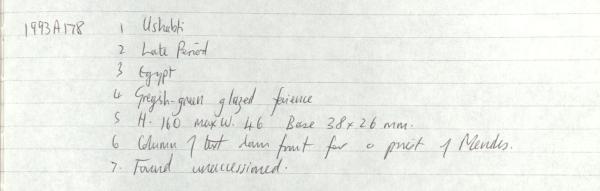 1993A178 1 Ushabti
2 Late Period
3 Egypt
4 Greyish-green glazed faience
5 H. 160 max W. 46 Base 38 x 26 mm.
6 Column of text down front for a priest of Mendes.
7. Found unaccessioned.